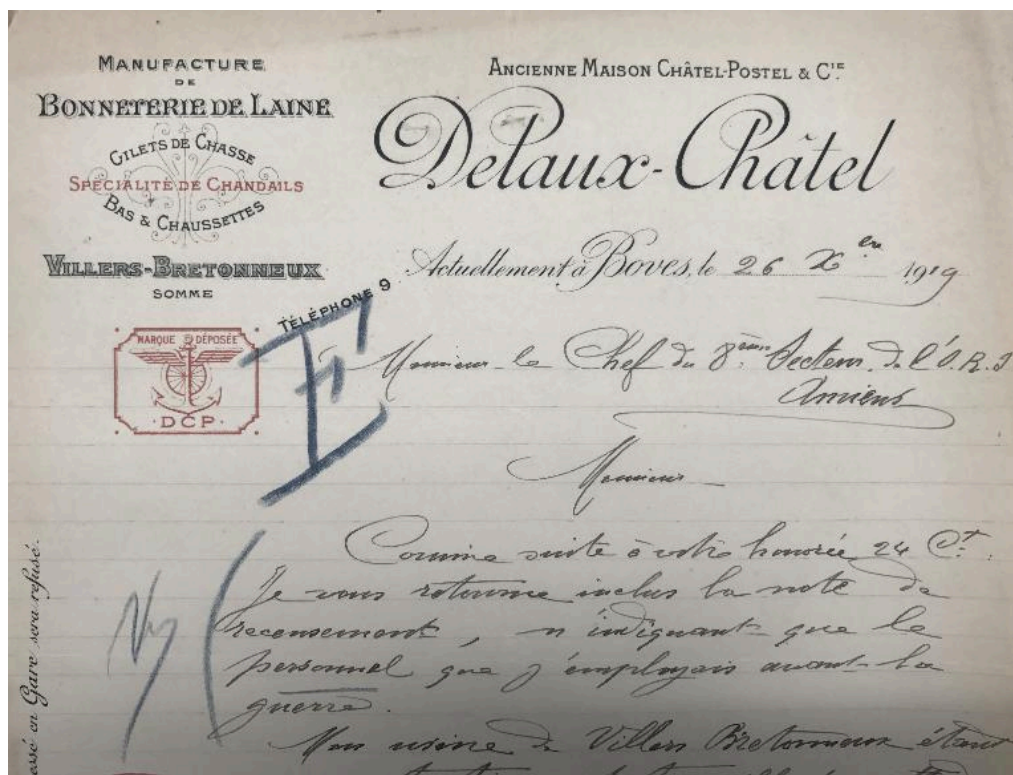 MANUFACTURE
DE
BONNETERIE DE LAINE
GILETS DE CHASSE
SPÉCIALITÉ DE CHANDAILS
BAS & CHAUSSETTES
VILLERS-BRETONNEUX
SOMME
TÉLÉPHONE 9
MARQUE DÉPOSÉE
DCP
ANCIENNE MAISON CHÂTEL-POSTEL & CIE
Delaux-Châtel
Actuellement à Boves, le 26 Xbre 1919
Monsieur le Chef du 8ème Secteur de l'O.R.I
Amiens
Monsieur
Comme suite à votre honorée 24 Ct.
Je vous retourne inclus la note de
recensement, n'indiquant que le
personnel que j'employais avant la
guerre.
Mon usine de Villers Bretonneux étant
en Gare sera refusé.